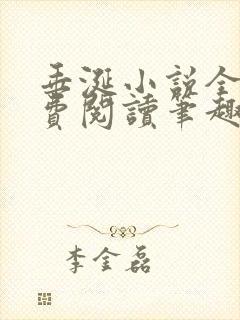 垂涎小说全
費閱讀筆趣
李金磊